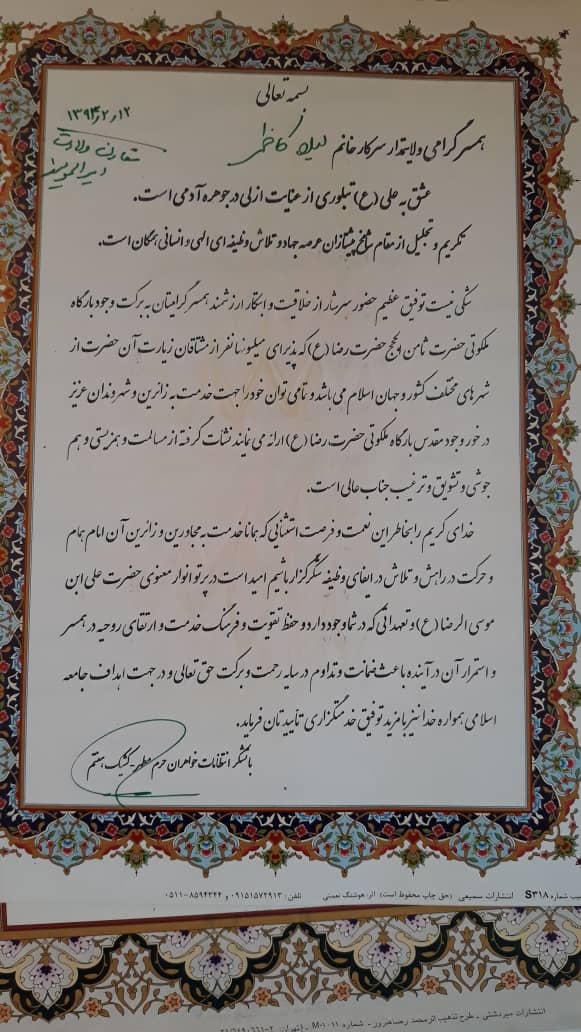 بسمه تعالی
۱۳۹۴٫۲٫۱۲
همسر گرامی ولایتمدار سرکار خانم کاظمی
عشق به علی (ع) تبلوری از عنایت ازلی در جوهره آدمی است.
تکریم و تجلیل از مقام شامخ پیشتازان عرصه جهاد و تلاش وظیفه ای الهی و انسانی همگان است.
شکی نیست توفیق عظیم حضور سرشار از خلاقیت و ابتکار ارزشمند همسر گرامیتان به برکت وجود بارگاه
ملکوتی حضرت ثامن الحجج حضرت رضا (ع) که پذیرای میلیونها نفر از مشتاقان زیارت آن حضرت از
شهرهای مختلف کشور و جهان اسلام می باشد و تمامی توان خود را جهت خدمت به زائرین و شهروندان عزیز
در خور وجود مقدس بارگاه ملکوتی حضرت رضا (ع) ارائه می نمایند نشات گرفته از مسالمت و همزیستی و هم
جوشی و تشویق و ترغیب جناب عالی است.
خدای کریم را بخاطر این نعمت و فرصت استثنایی که همانا خدمت به مجاورین و زائرین آن امام همام
و حرکت در راهش و تلاش در ایفای وظیفه شکرگزار باشیم امید است در پرتو انوار معنوی حضرت علی ابن
موسی الرضا (ع) و تعهداتی که در شما وجود دارد و حفظ تقویت و فرهنگ خدمت و ارتقای روحیه در همسر
و استمرار آن در آینده باعث ضمانت و تداوم در سایه رحمت و برکت حق تعالی و در جهت اهداف جامعه
اسلامی همواره خدا نیز با مزید توفیق خدمتگزاری تأییدتان فرماید.
باتشکر انتظامات خواهران حرم مطهر - کشیک هشتم
شماره S۳۱۸ انتشارات سمیعی (حق چاپ محفوظ است) اثر: هوشنگ نعمتی تلفن: ۰۹۱۵۱۵۷۲۹۱۳ و ۸۵۹۴۳۴۴-۰۵۱۱
انتشارات میردشتی - طرح تذهیب اثر محمد رضا هنرور - شماره M-۱۰۱۱